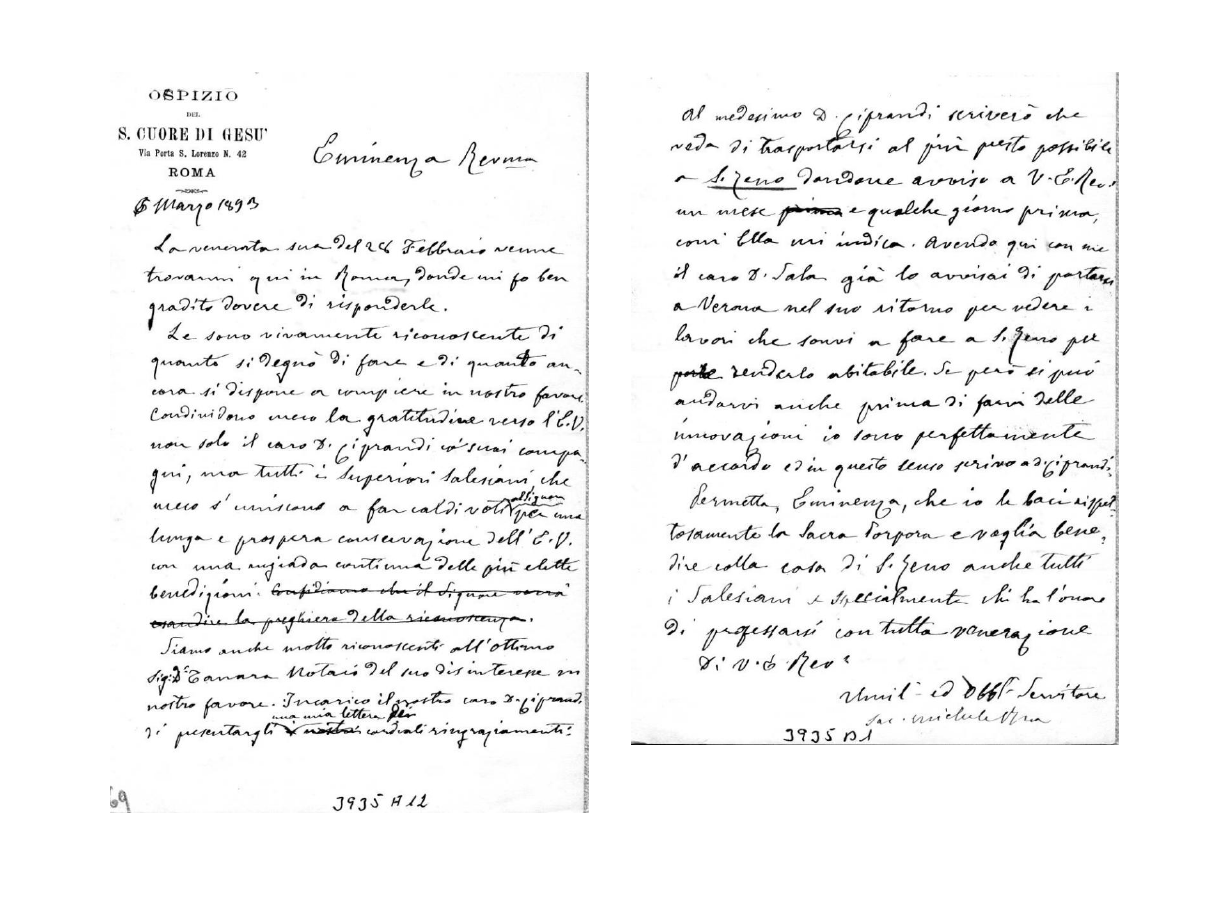 OSPIZIO
DEL
S. CUORE DI GESU'
Via Porta S. Lorenzo N. 42
ROMA
6 Marzo 1893
Eminenza Revma
La venerata sua del 28 Febbraio venne
trovarmi qui in Roma, donde mi fo ben
gradito dovere di risponderle.
Le sono vivamente riconoscente di
quanto si degnò di fare e di quanto an-
cora si dispone a compiere in nostro favore.
Condividono meco la gratitudine verso l'E.V.
non solo il caro D. Ciprandi co' suoi compa-
gni, ma tutti i Superiori Salesiani, che
meco s'uniscono a far caldi voti al Signore per una
lunga e prospera conservazione dell'E.V.
con una miriade continua delle più elette
benedizioni. Confidiamo che il Signore vorrà
esaudire la preghiera della riconoscenza.
Siamo anche molto riconoscenti all'ottimo
Sig. Dr Tanara Notaio del suo disinteresse in
nostro favore. Incarico il nostro caro D. Ciprandi
una mia lettera per
di presentargli i nostri cordiali ringraziamenti.
69
3935 A 12
Al medesimo D. Ciprandi scriverò che
veda di trasportarsi al più presto possibile
a S. Zeno dandone avviso a V. E. Rev.
un mese prima e qualche giorno prima,
com' Ella mi indica. Avendo qui con me
il caro D. Sala già lo avvisai di portarsi
a Verona nel suo ritorno per vedere i
lavori che sonvi a fare a S. Zeno per
renderlo abitabile. Se però si può
andarvi anche prima di farvi delle
innovazioni io sono perfettamente
d'accordo ed in questo senso scrivo a D. Ciprandi.
Permetta, Eminenza, che io le baci rispet-
tosamente la Sacra Porpora e voglia bene-
dire colla casa di S. Zeno anche tutti
i Salesiani e specialmente chi ha l'onore
di professarsi con tutta venerazione
Di V. E. Rev.a
Umil. ed Obbl. Servitore
Sac. Michele Rua
3935 B 1